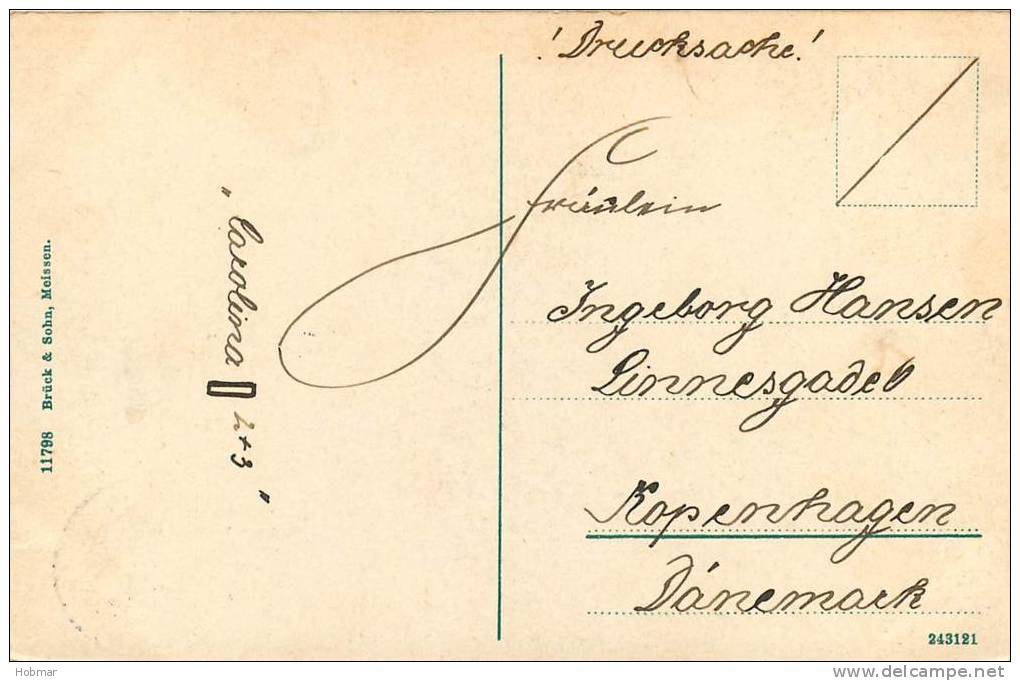 ! Drucksache!
Fräulein
Ingeborg Hansen
Linnesgade 6
Kopenhagen
Dänemark
„Carolina 2+3”
11798 Brück & Sohn, Meissen.
243121
Hobmar
www.delcampe.net